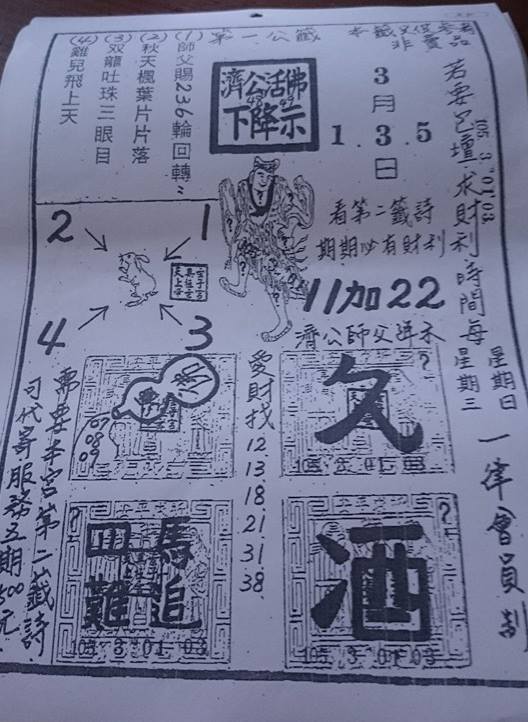 第一公籤
本籤文僅參考
非賣品
濟公活佛
下降示
3月
1.3.5日
若要乞壇求財利時間每
星期三
星期日
一律會員制
105.3.01.03
(1)師父賜236輪回轉
(2)秋天楓葉片片落
(3)双龍吐珠三眼目
(4)雞兒飛上天
看第二籤詩
期期必有財利
2
1
4
3
11加22
濟公師父降示
愛財找
12
13
18
21
31
38
67
08
09
久
105.3.01.03
四馬
難追
105.3.01.03
酒
105.3.01.03
需要本宮第二籤詩
司代寄服務五期500元